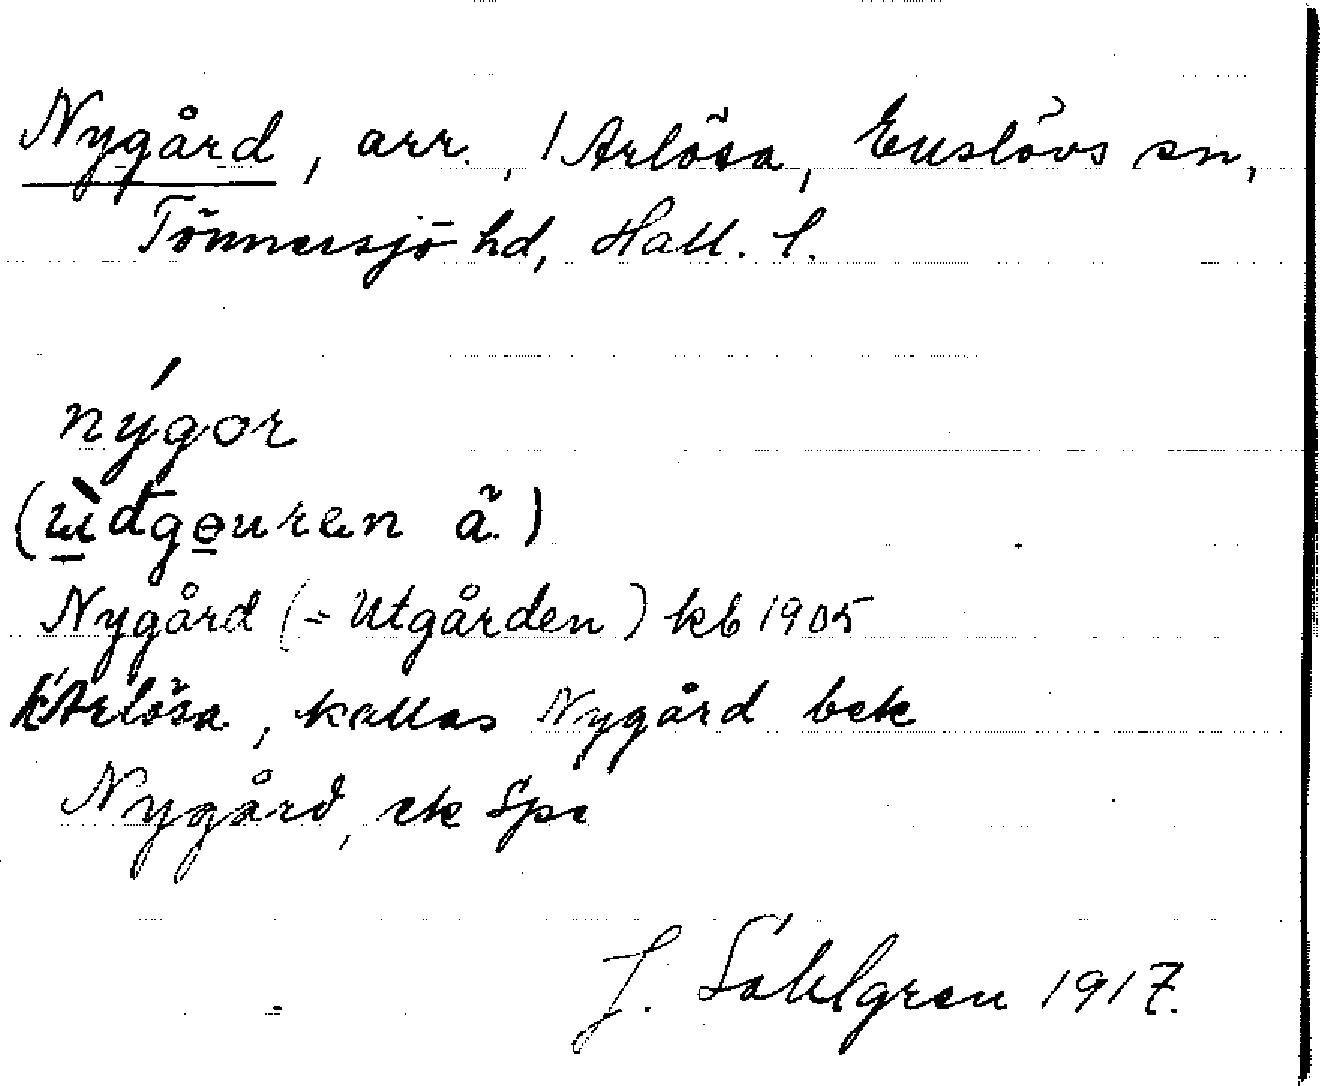 Nygård, arr., /Arlösa, Euslövs sn,
Tönnersjö hd, Hall. l.
nýgor
(ùdgeuren ã)
Nygård (= Utgården) kb 1905
Arlösa, kallas Nygård bek
Nygård, ek Spe
J. Sahlgren 1917.